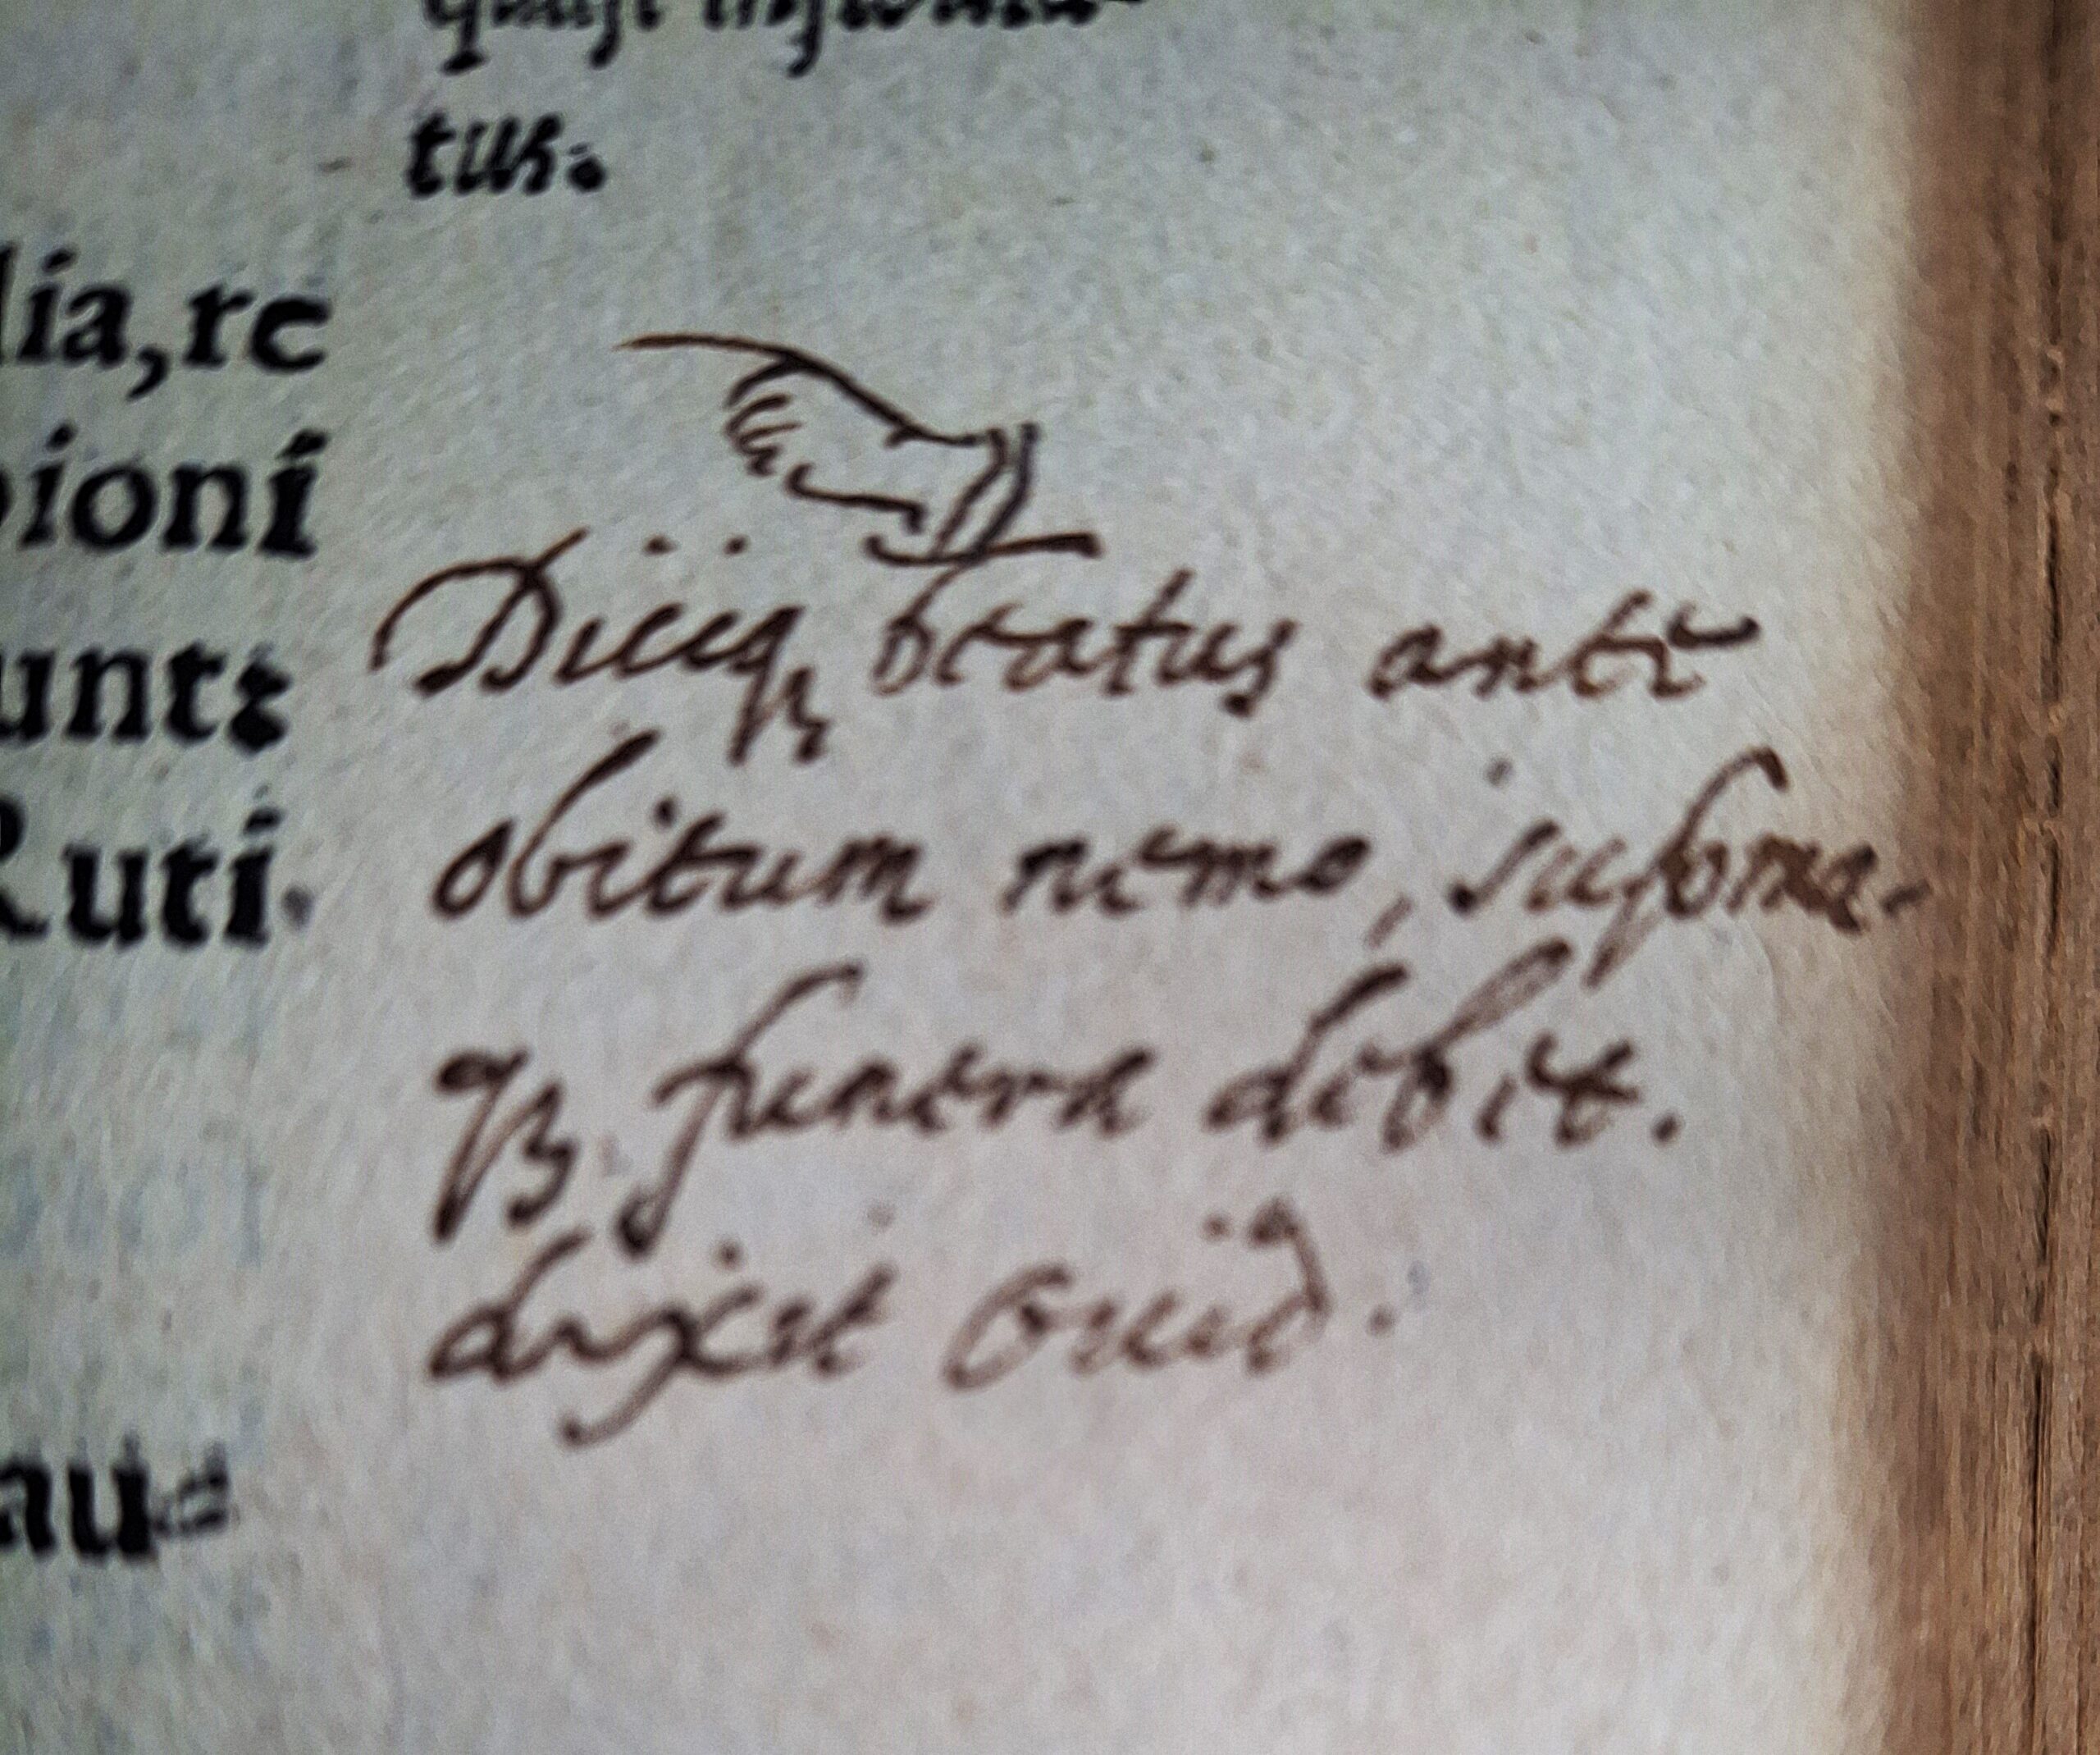 quasi
tus.
lia,re
pioni
unt:
Ruti.
au=
Diciq; beatus ante
obitum nemo, suprema-
q; funera debet.
dixit Ouid.